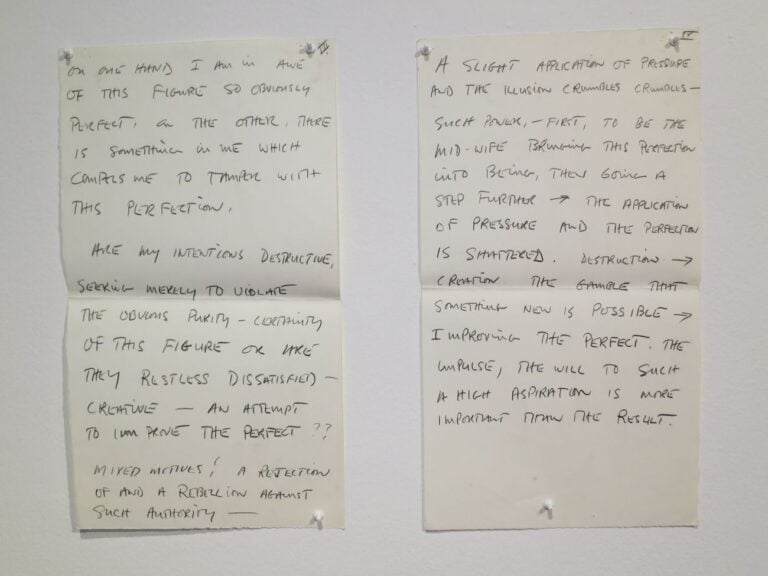 IV
ON ONE HAND I AM IN AWE
OF THIS FIGURE SO OBVIOUSLY
PERFECT. ON THE OTHER, THERE
IS SOMETHING IN ME WHICH
COMPELS ME TO TAMPER WITH
THIS PERFECTION.
ARE MY INTENTIONS DESTRUCTIVE,
SEEKING MERELY TO VIOLATE
THE OBVIOUS PURITY – CERTAINTY
OF THIS FIGURE OR ARE
THEY RESTLESS DISSATISFIED –
CREATIVE – AN ATTEMPT
TO IMPROVE THE PERFECT ??
MIXED MOTIVES! A REJECTION
OF AND A REBELLION AGAINST
SUCH AUTHORITY —
V
A SLIGHT APPLICATION OF PRESSURE
AND THE ILLUSION CRUMBLES CRUMBLES –
SUCH POWER, – FIRST, TO BE THE
MID-WIFE BRINGING THIS PERFECTION
INTO BEING, THEN GOING A
STEP FURTHER → THE APPLICATION
OF PRESSURE AND THE PERFECTION
IS SHATTERED. DESTRUCTION →
CREATION THE GAMBLE THAT
SOMETHING NEW IS POSSIBLE →
IMPROVING THE PERFECT. THE
IMPULSE, THE WILL TO SUCH
A HIGH ASPIRATION IS MORE
IMPORTANT THAN THE RESULT.